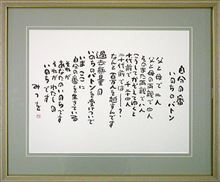 自分の番
いのちのバトン
父と母で二人
父と母の両親で四人
そのまた両親で八人
こうしてかぞえてゆくと
十代前で千二十四人
二十代前では
なんと百万人を超すんです
過去無量の
いのちのバトンを受けついで
いまここに
自分の番を生きている
それが
あなたのいのちです
それがわたしの
いのちです
みつを